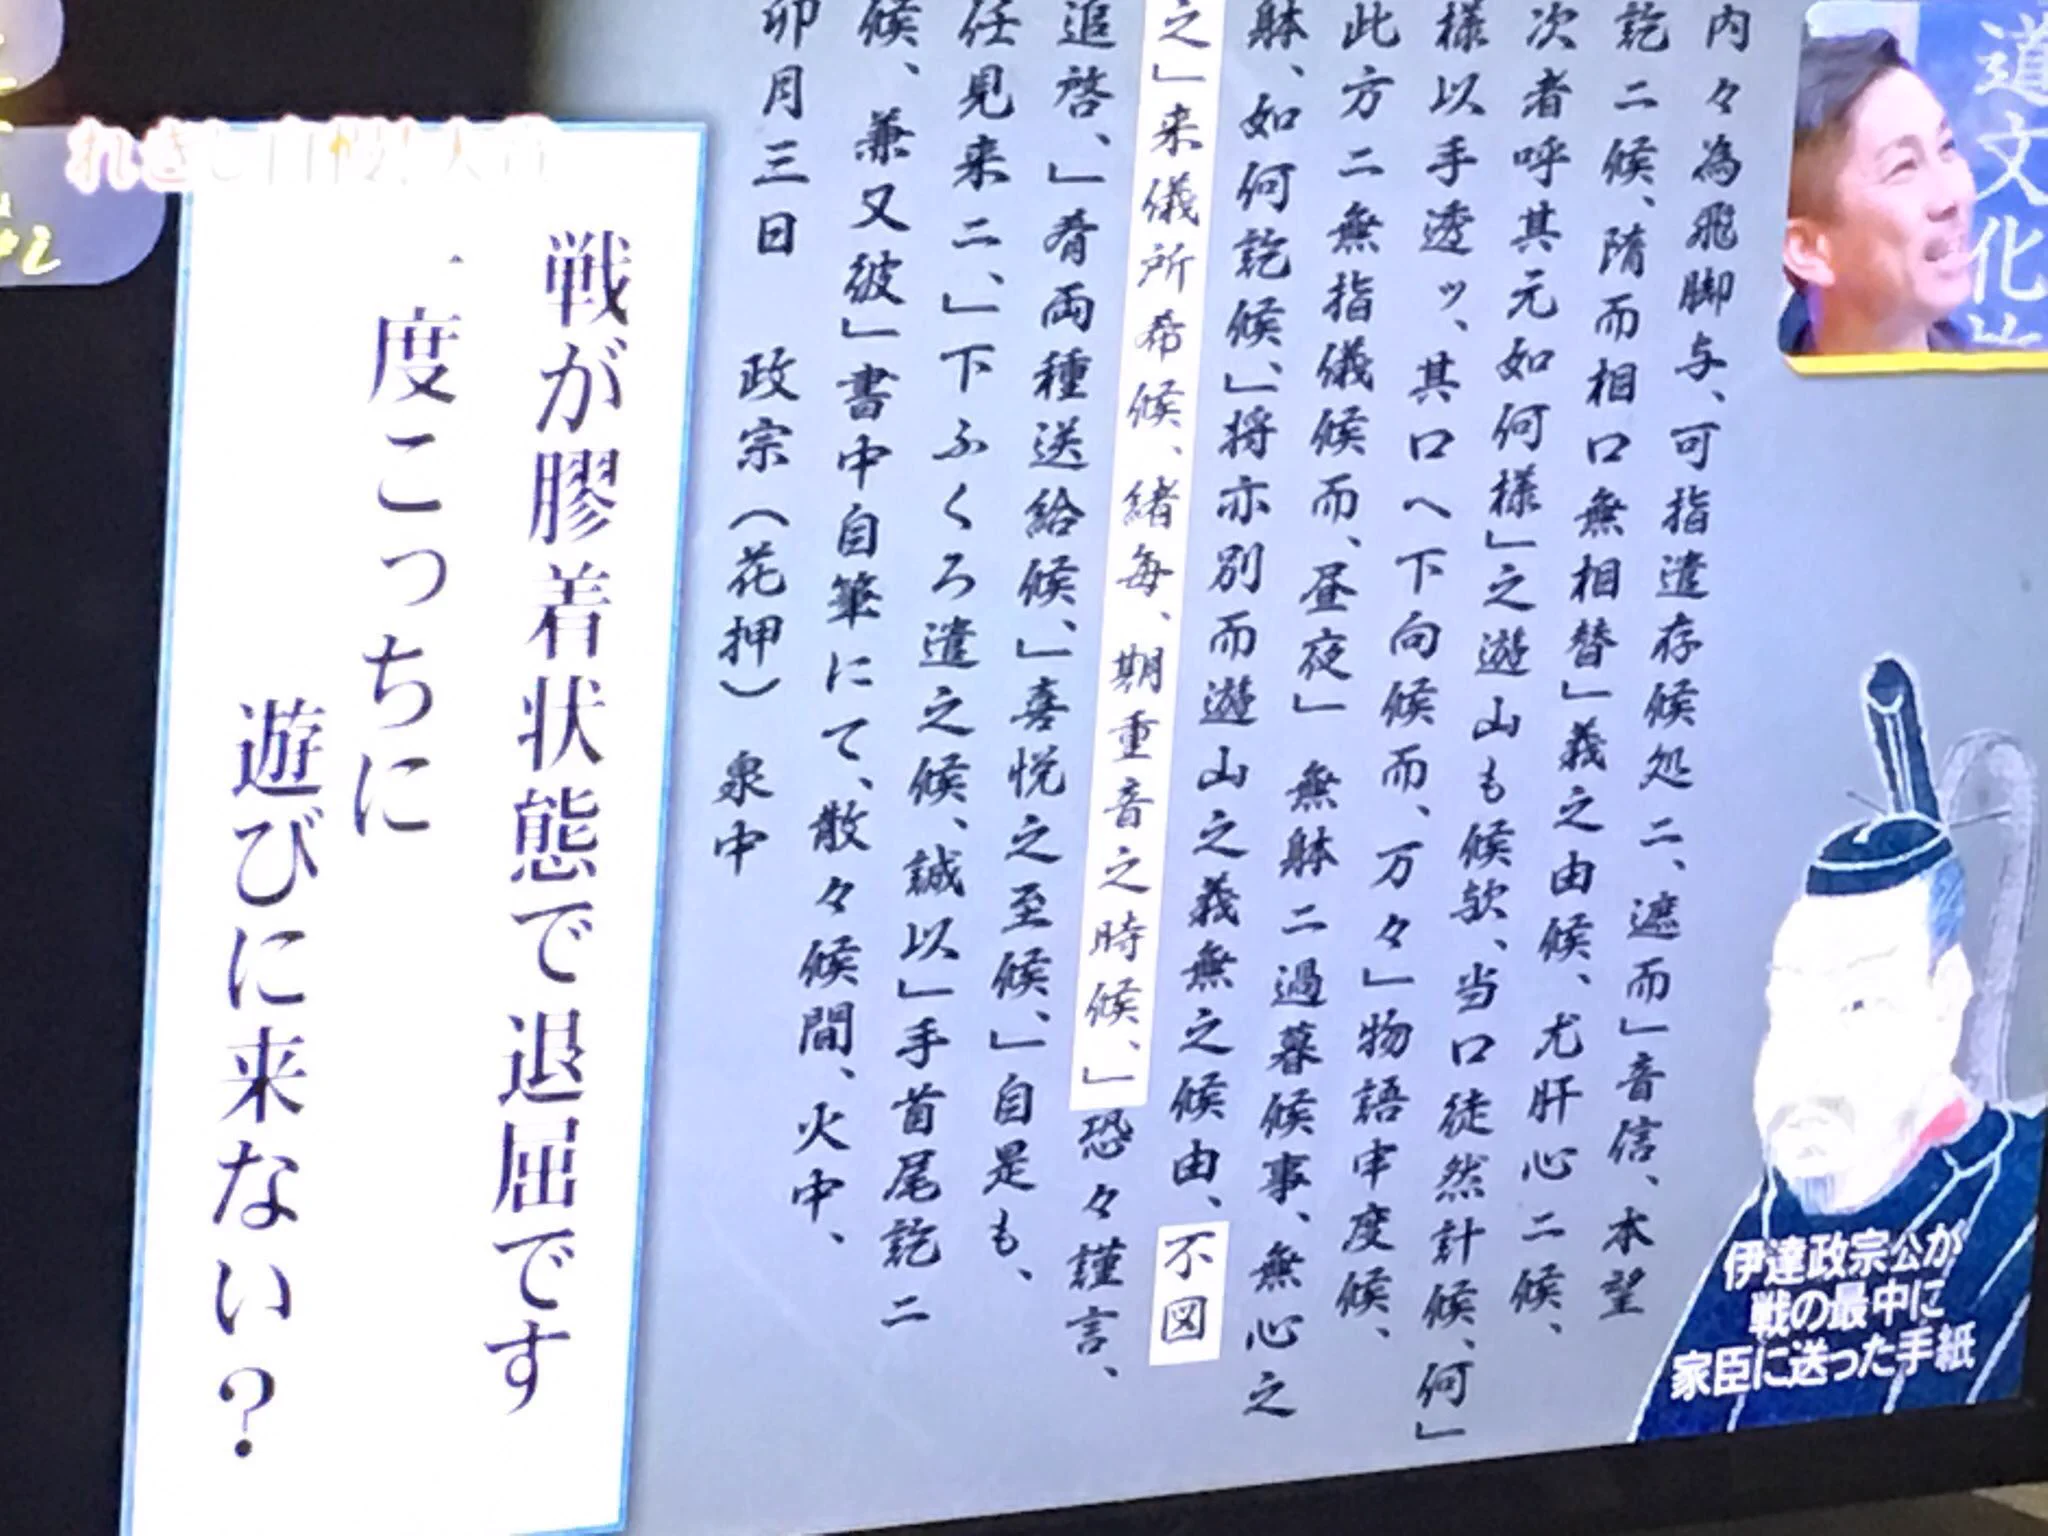 内々為飛脚与、可指遣存候処ニ、遮而」音信、本望
訖ニ候、隋而相口無相替」義之由候、尤肝心ニ候、
次者呼其元如何様」之遊山も候欤、当口徒然計候、何」
様以手透ッ、其口へ下向候而、万々」物語申度候、
此方ニ無指儀候而、昼夜」無躰ニ過暮候事、無心之
躰、如何訖候、」将亦別而遊山之義無之候由、不図
之」来儀所希候、緒毎、期重音之時候、」恐々謹言、
追啓、」肴両種送給候、」喜悦之至候、」自是も、
任見来ニ、」下ふくろ遣之候、誠以」手首尾訖ニ
候、兼又彼」書中自筆にて、散々候間、火中、
卯月三日 政宗(花押) 泉中
戦が膠着状態で退屈です
一度こっちに
遊びに来ない?
道文化
伊達政宗公が
戦の最中に
家臣に送った手紙